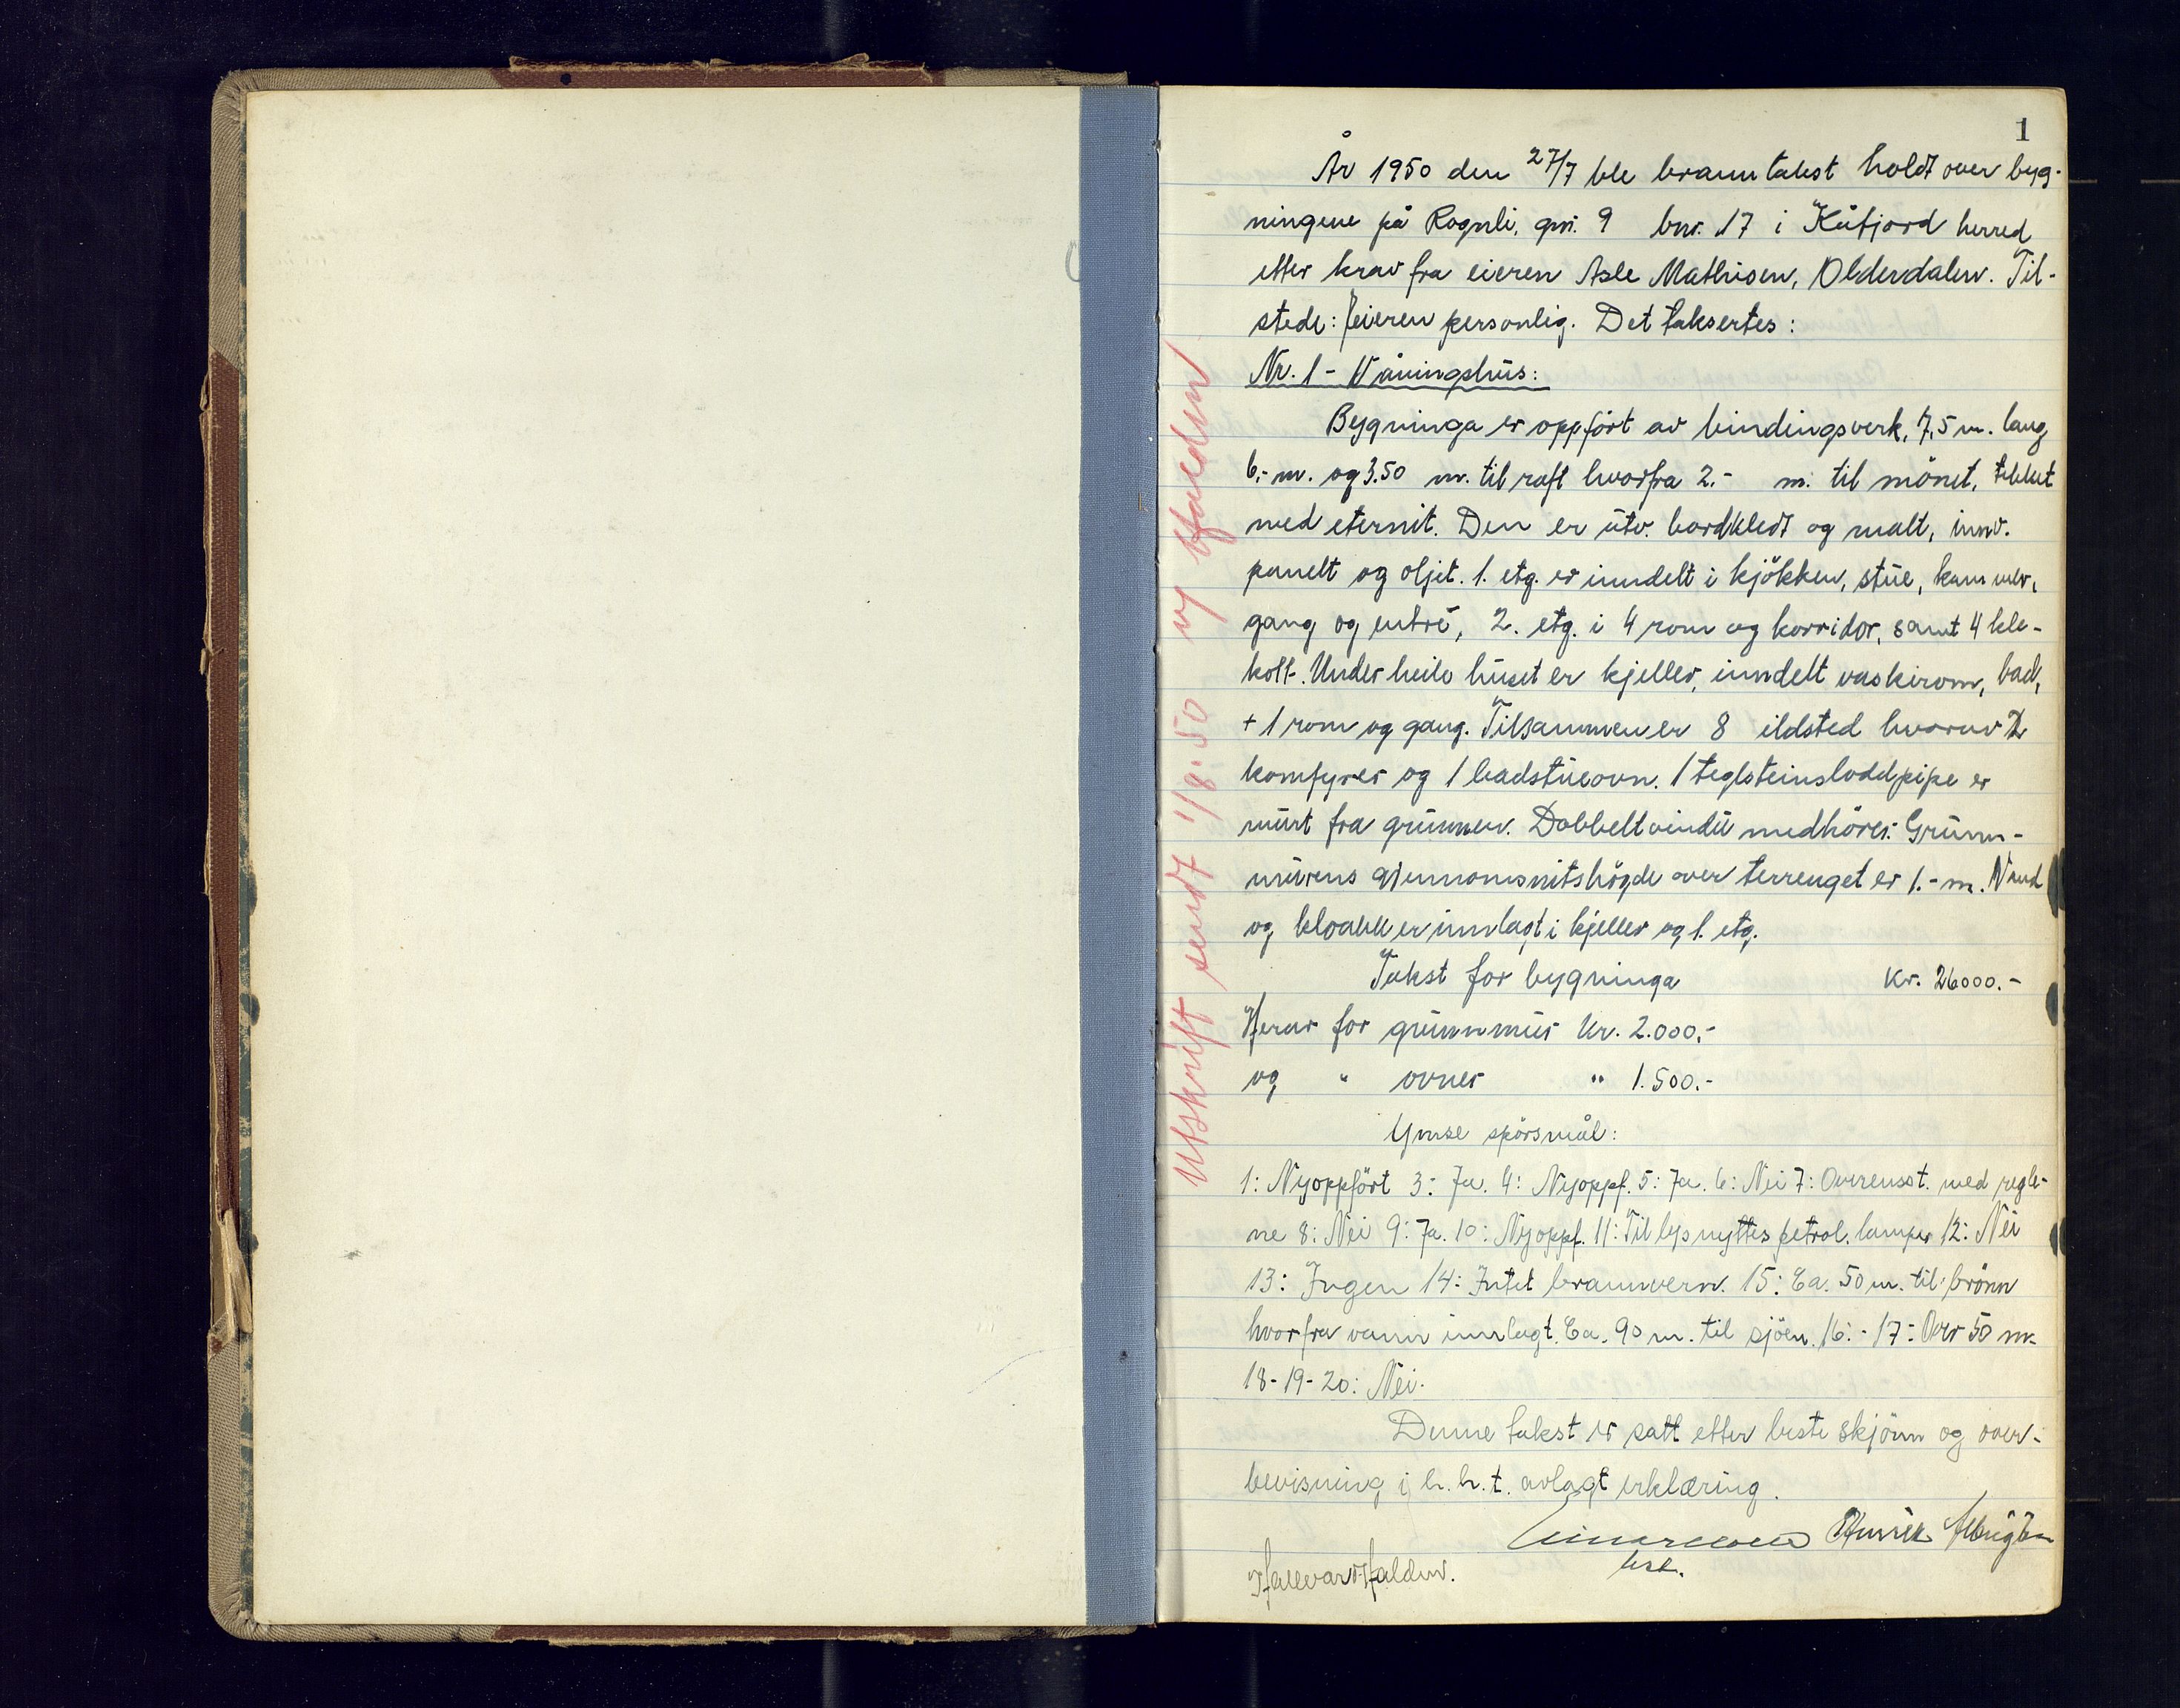 1
År 1950 den 27/7 ble branntakst holdt over byg-
ningene på Rognli, gnr. 9 bnr. 17 i Kåfjord herred
etter krav fra eieren Asle Mathisen, Olderdalen. Til-
stede: Eieren personlig. Det taksertes:
Nr. 1 - Våningshus:
Bygninga er oppfört av bindingsverk, 7,5 m. lang
6,- m. og 3.50 m. til raft hvorfra 2.- m. til mönet, tekket
med eternit. Den er utv. bordkledt og malt, innv.
panelt og oljet. 1. etg. er inndelt i kjökken, stue, kammer,
gang og entré, 2. etg. i 4 rom og korridor, samt 4 kle-
kott. Under heile huset er kjeller, inndelt vaskirom, bad,
+ 1 rom og gang. Tilsammen er 8 ildsted hvorav 2
komfyrer og 1 badstueovn. 1 teglsteinsloddpipe er
murt fra grunnen. Dobbeltvindu medhörer. Grunn-
murens gjennomsnitshögde over terrenget er 1.- m. Vand
og kloakk er innlagt i kjeller og 1. etg.
Takst for bygninga kr. 26000.-
Herav for grunnmur kr. 2.000.-
og " ovner " 1.500.-
Ymse spörsmål:
1: Nyoppfört 3: Ja. 4: Nyoppf. 5: Ja. 6: Nei 7: Overensst. med regle-
ne 8: Nei 9: Ja. 10: Nyoppf. 11: Til lys nyttes petrol. lamper 12: Nei
13: Ingen 14: Intet brannvern. 15: Ca. 50 m. til brönn
hvorfra vann innlagt. Ca. 90 m. til sjöen. 16: - 17: Over 50 m.
18-19-20: Nei.
Denne takst er satt etter beste skjönn og over-
bevisning i h. h. t. avlagt erklæring.
Henrik
Hallvard Halden.
Utskrift sendt 1/8.50